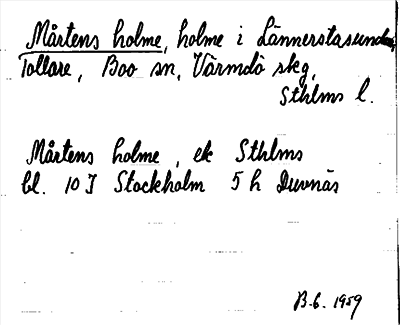 Mårtens holme, holme i Lännerstasunden,
Tollare, Boo sn, Värmdö skg,
Sthlms l.
Mårtens holme, ek Sthlms
bl. 10 I Stockholm 5 h Duvnäs
B.G. 1959